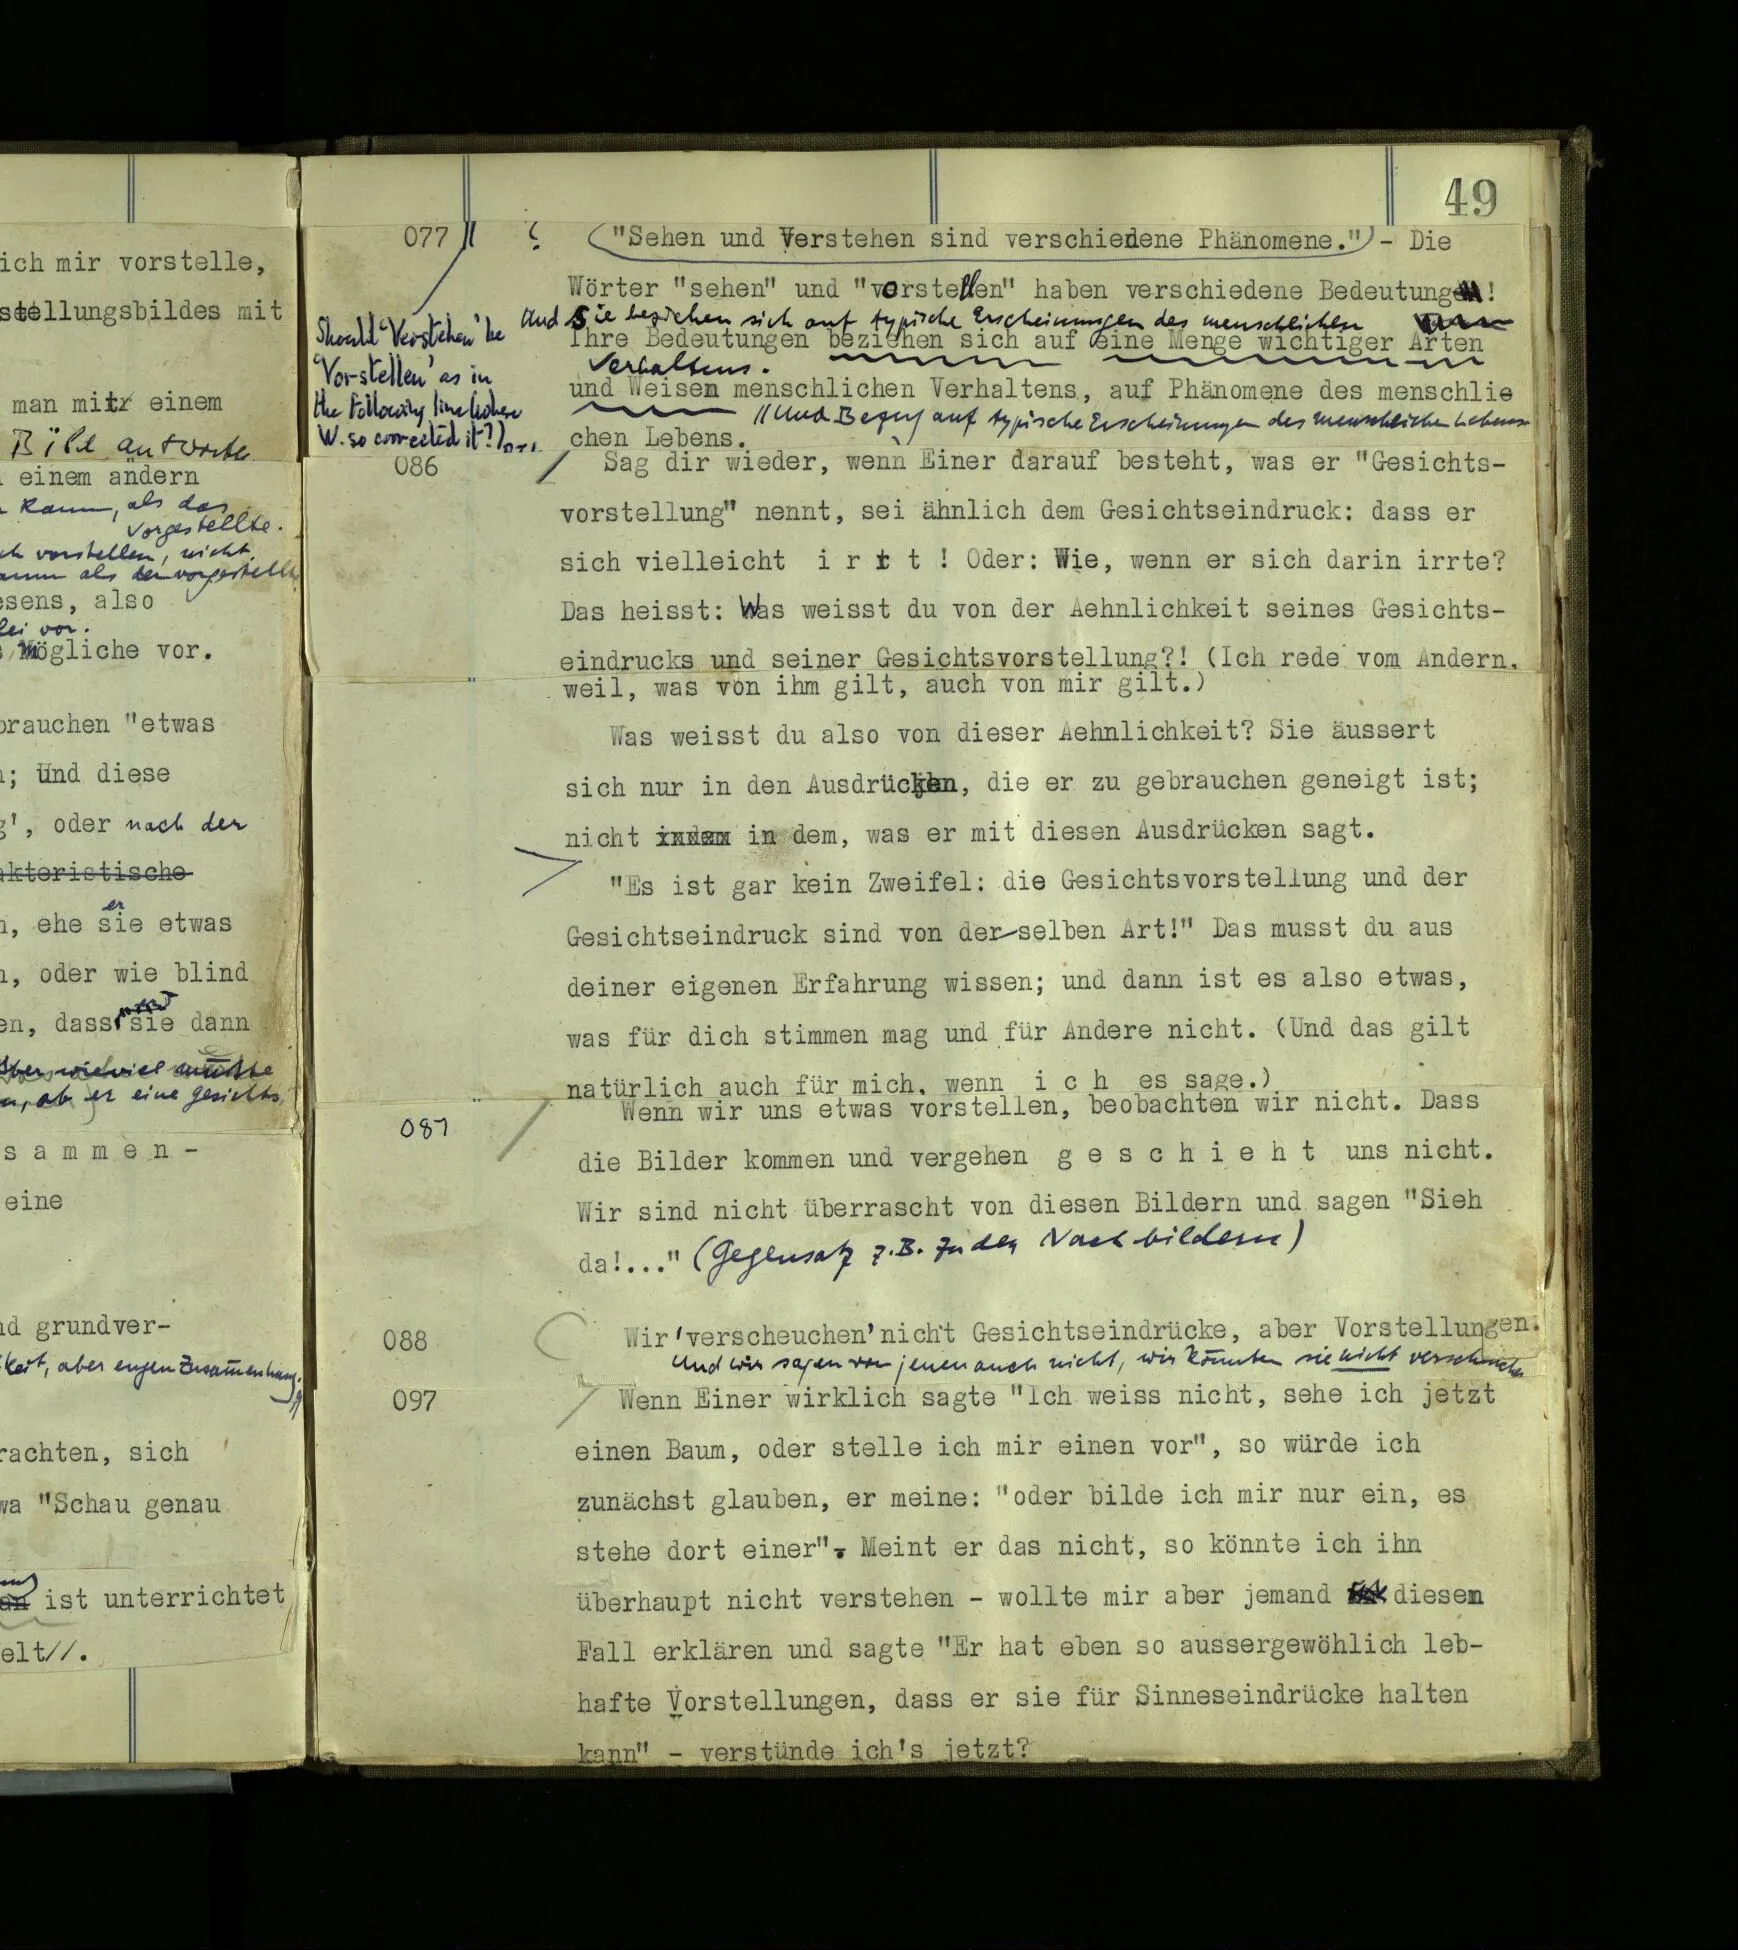 ich mir vorstelle,
stellungsbildes mit
man mit einem
Bild antworte
einem andern
kann, als das
vorgestellte.
vorstellen, nicht
als der vorgestellte
esens, also
lei vor.
Mögliche vor.
brauchen "etwas
; Und diese
g', oder nach der
akteristische
n, ehe sie etwas
er
n, oder wie blind
en, dass sie dann
Aber wieviel müsste
ob er eine Gesichts
s a m m e n -
eine
nd grundver-
keit, aber engen Zusammenhang.
rachten, sich
wa "Schau genau
ist unterrichtet
elt//.
49
077 // ? ("Sehen und Verstehen sind verschiedene Phänomene.") - Die
Wörter "sehen" und "vorstellen" haben verschiedene Bedeutungen!
Und Sie beziehen sich auf typische Erscheinungen des menschlichen
Ihre Bedeutungen beziehen sich auf eine Menge wichtiger Arten
Verhaltens.
und Weisen menschlichen Verhaltens, auf Phänomene des menschlie
// Und Bezug auf typische Erscheinungen des menschlichen Lebens
chen Lebens.
Should 'Verstehen' be
'Vor-stellen' as in
the following line (where
W. so corrected it?)
086 / Sag dir wieder, wenn Einer darauf besteht, was er "Gesichts-
vorstellung" nennt, sei ähnlich dem Gesichtseindruck: dass er
sich vielleicht i r r t ! Oder: Wie, wenn er sich darin irrte?
Das heisst: Was weisst du von der Aehnlichkeit seines Gesichts-
eindrucks und seiner Gesichtsvorstellung?! (Ich rede vom Andern,
weil, was von ihm gilt, auch von mir gilt.)
Was weisst du also von dieser Aehnlichkeit? Sie äussert
sich nur in den Ausdrücken, die er zu gebrauchen geneigt ist;
nicht in dem, was er mit diesen Ausdrücken sagt.
"Es ist gar kein Zweifel: die Gesichtsvorstellung und der
Gesichtseindruck sind von derselben Art!" Das musst du aus
deiner eigenen Erfahrung wissen; und dann ist es also etwas,
was für dich stimmen mag und für Andere nicht. (Und das gilt
natürlich auch für mich, wenn i c h es sage.)
087 / Wenn wir uns etwas vorstellen, beobachten wir nicht. Dass
die Bilder kommen und vergehen g e s c h i e h t uns nicht.
Wir sind nicht überrascht von diesen Bildern und sagen "Sieh
da!..." (Gegensatz z.B. zu den Nachbildern)
088 Wir 'verscheuchen' nicht Gesichtseindrücke, aber Vorstellungen.
Und wir sagen von jenen auch nicht, wir könnten sie nicht verscheuchen
097 / Wenn Einer wirklich sagte "Ich weiss nicht, sehe ich jetzt
einen Baum, oder stelle ich mir einen vor", so würde ich
zunächst glauben, er meine: "oder bilde ich mir nur ein, es
stehe dort einer". Meint er das nicht, so könnte ich ihn
überhaupt nicht verstehen - wollte mir aber jemand diesen
Fall erklären und sagte "Er hat eben so aussergewöhlich leb-
hafte Vorstellungen, dass er sie für Sinneseindrücke halten
kann" - verstünde ich's jetzt?